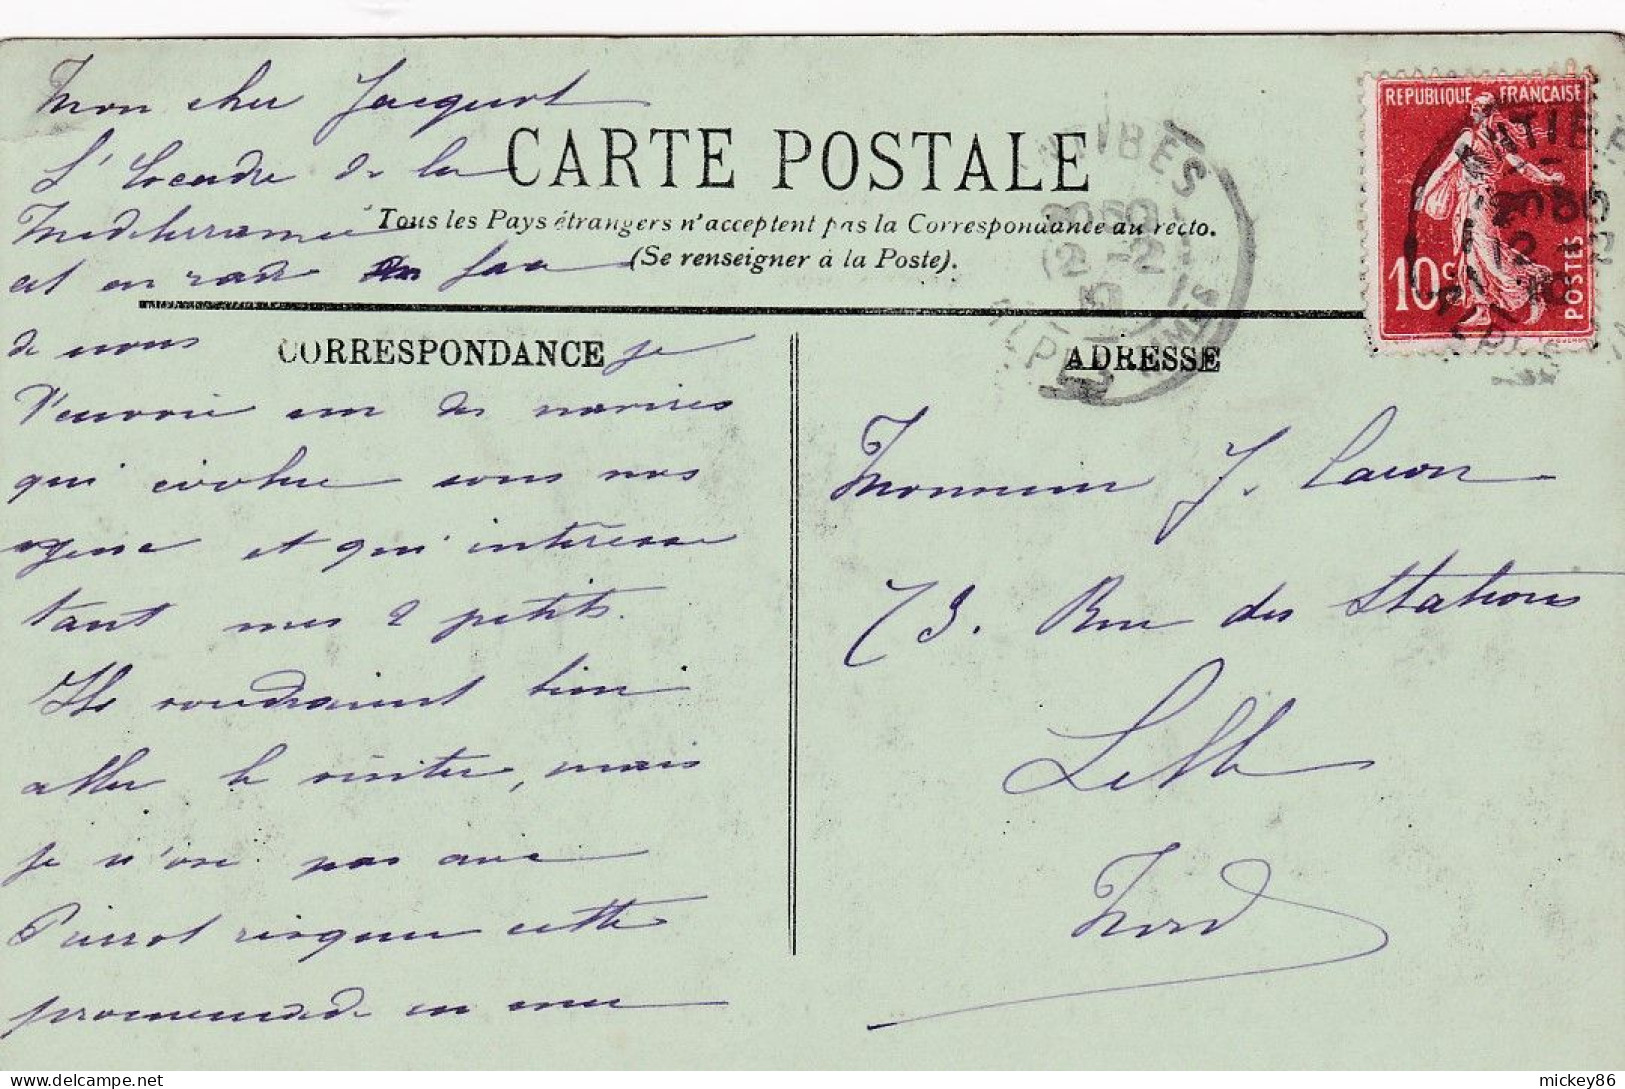 Mon cher Jacquot
L'Escadre de la
Mediterranée
est en rade en face
de nous
je
t'envoie un des navires
qui évolue sous nos
yeux et qui intéresse
tant mes 2 petits.
Ils voudraient bien
aller le visiter, mais
je n'ose pas avec
Pierrot risquer cette
promenade en mer
CARTE POSTALE
Tous les Pays étrangers n'acceptent pas la Correspondance au recto.
(Se renseigner à la Poste).
CORRESPONDANCE
ADRESSE
REPUBLIQUE FRANÇAISE
10c
POSTES
ANTIBES
ANTIBES
Monsieur J. Caron
73. Rue des Stations
Lille
Nord
delcampe.net
mickey86